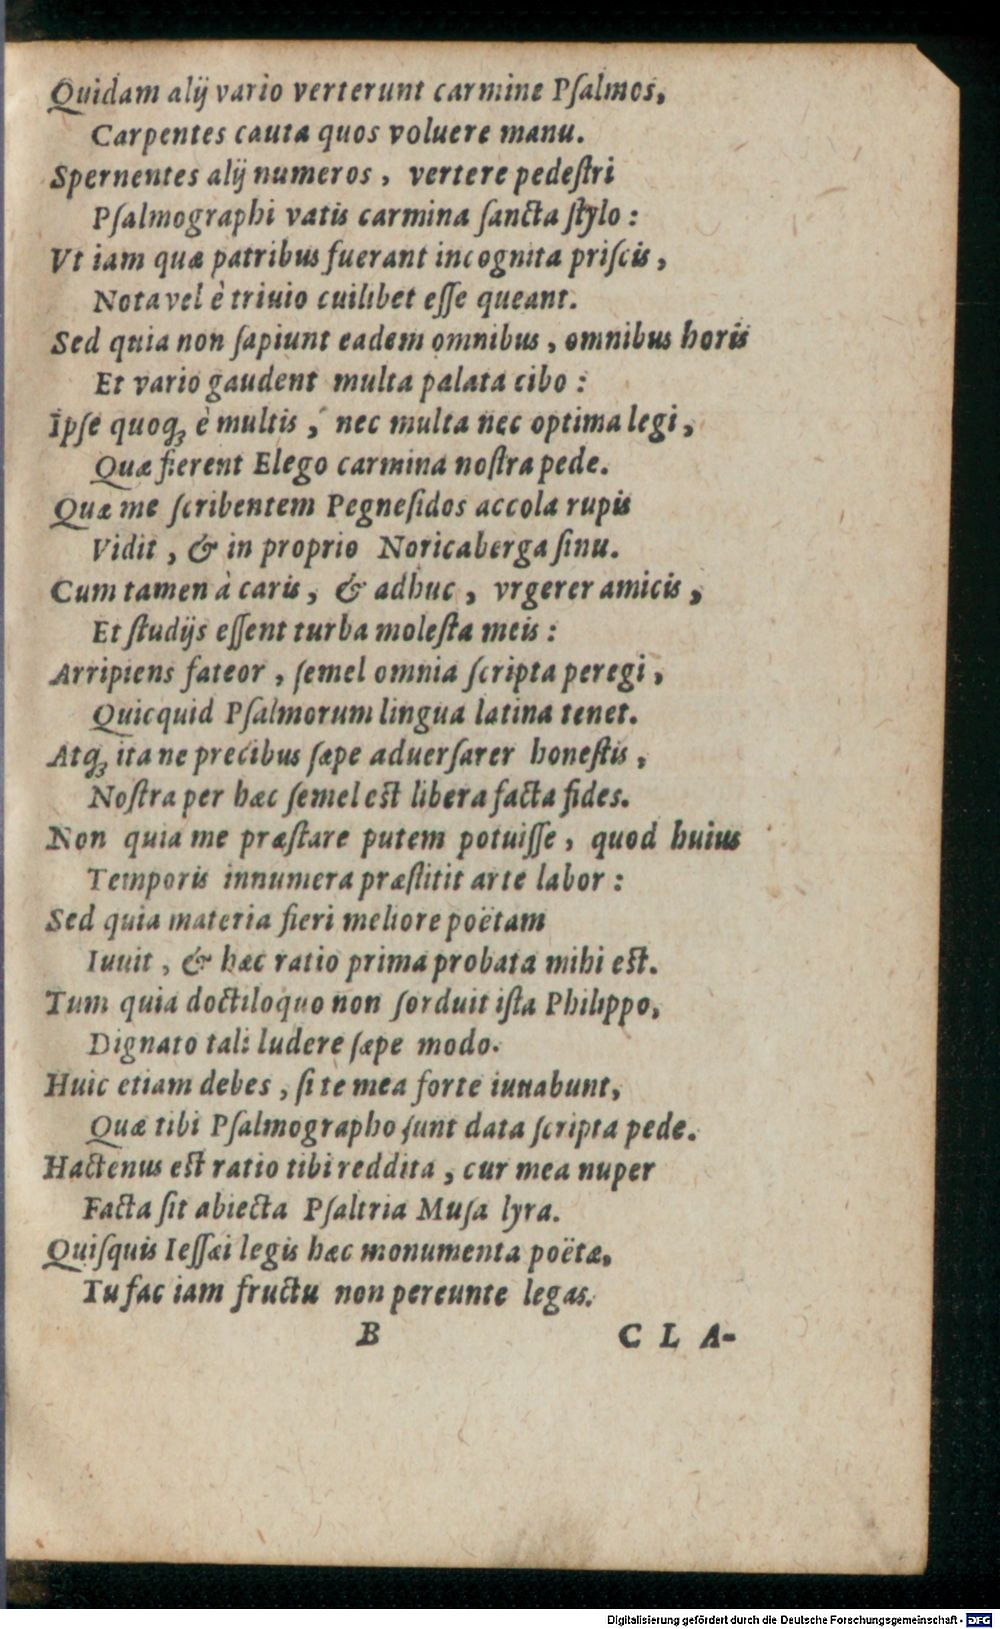 Quidam alij vario verterunt carmine Pſalmos,
Carpentes cauta quos voluere manu.
Spernentes alij numeros, vertere pedeſtri
Pſalmographi vatis carmina ſancta ſtylo:
Vt iam quæ patribus fuerant incognita priſcis,
Nota vel è triuio cuilibet eſſe queant.
Sed quia non ſapiunt eadem omnibus, omnibus horis
Et vario gaudent multa palata cibo:
Ipſe quoq; è multis, nec multa nec optima legi,
Quæ fierent Elego carmina noſtra pede.
Quæ me ſcribentem Pegneſidos accola rupis
Vidit, & in proprio Noricaberga ſinu.
Cum tamen à caris, & adhuc, vrgerer amicis,
Et ſtudijs eſſent turba moleſta meis:
Arripiens fateor, ſemel omnia ſcripta peregi,
Quicquid Pſalmorum lingua latina tenet.
Atq; ita ne precibus ſæpe aduerſarer honeſtis,
Noſtra per hæc ſemel eſt libera facta fides.
Non quia me præſtare putem potuiſſe, quod huius
Temporis innumera præſtitit arte labor:
Sed quia materia fieri meliore poëtam
Iuuit, & hæc ratio prima probata mihi eſt.
Tum quia doctiloquo non ſorduit iſta Philippo,
Dignato tali ludere ſæpe modo.
Huic etiam debes, ſi te mea forte iuuabunt,
Quæ tibi Pſalmographo ſunt data ſcripta pede.
Hactenus eſt ratio tibi reddita, cur mea nuper
Facta ſit abiecta Pſaltria Muſa lyra.
Quiſquis Ieſſæi legis hæc monumenta poëtæ,
Tu fac iam fructu non pereunte legas.
B CLA-
Digitalisierung gefördert durch die Deutsche Forschungsgemeinschaft - DFG